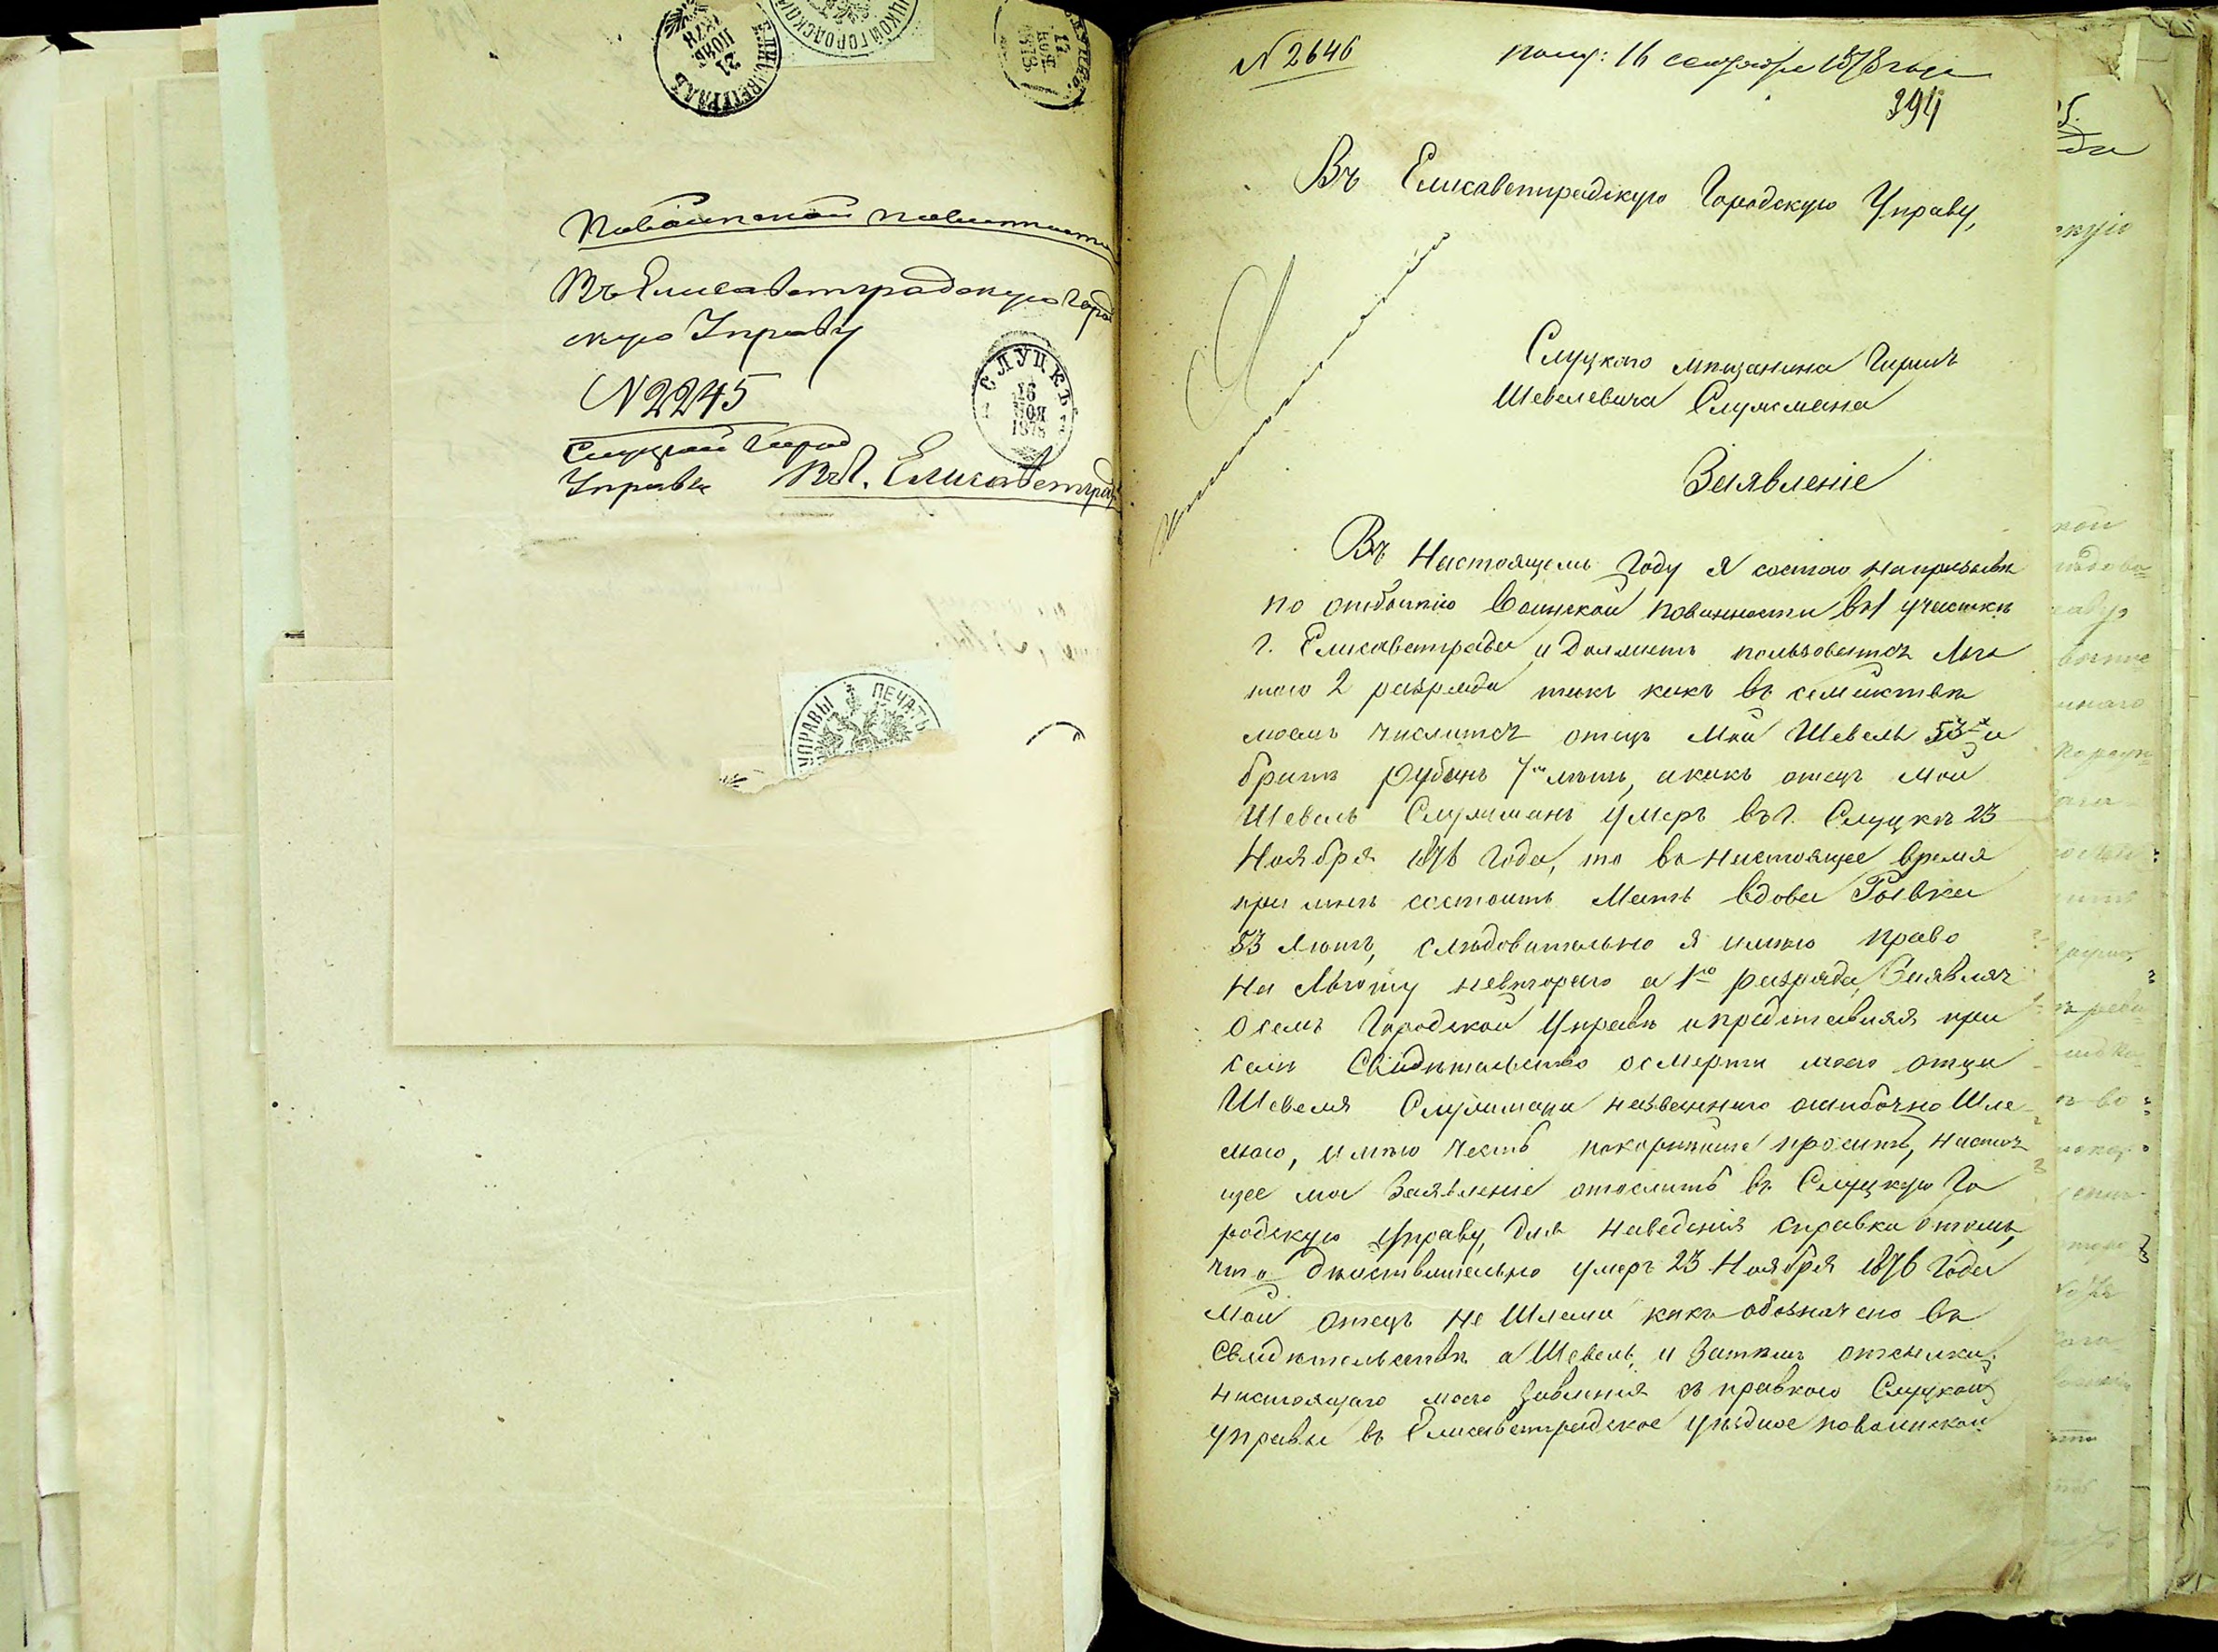 21
НОЯБ
1878
ЕЛИСАВЕТГРАДЪ
17
НОЯ
1878
По воинской повинности
Въ Елисаветградскую Город
скую Управу
N 2245
СЛУЦКЪ
16
НОЯ
1878
Слуцкой Город
Управы
Въ г. Елисаветград
УПРАВЫ ПЕЧАТЬ
N 2646
полу: 16 сентября 1878 года
394
Въ Елисаветградскую Городскую Управу,
Слуцкого мѣщанина Гирша
Шевелевича Служмана
Заявленіе
Въ Настоящемъ Году я состою на призывѣ
по отбытію Воинской повинности въ 1 участкѣ
г. Елисаветграда и долженъ пользоватся Льго
тою 2 разряда такъ какъ въ семействѣ
моемъ числится отецъ Мой Шевель 53х и
братъ Рубинъ 7ми лѣтъ, а какъ отецъ мой
Шевель Служманъ умеръ въ г. Слуцкѣ 23
Ноября 1876 Года, то въ настоящее время
при мнѣ состоитъ Мать вдова Рывка
53 лѣтъ, слѣдовательно я имѣю право
на Льготу не второго а 1го разряда, Заявляя
о семъ Городской Управѣ и представляя при
семъ Свидѣтельство о смерти моего отца
Шевеля Служмана названного ошибочно Шле
мою, имѣю честь покорнѣйше просить, настоя
щее мое Заявленіе отослать въ Слуцкую Го
родскую Управу, для наведенія справки о томъ,
что дѣйствительно умеръ 23 Ноября 1876 Года
Мой отецъ не Шлема какъ обозначено въ
Свидѣтельствѣ а Шевель, и затѣмъ отсылки
настоящаго моего Заявленія съ правкою Слуцкой
управы въ Елисаветградское уѣздное по воинской